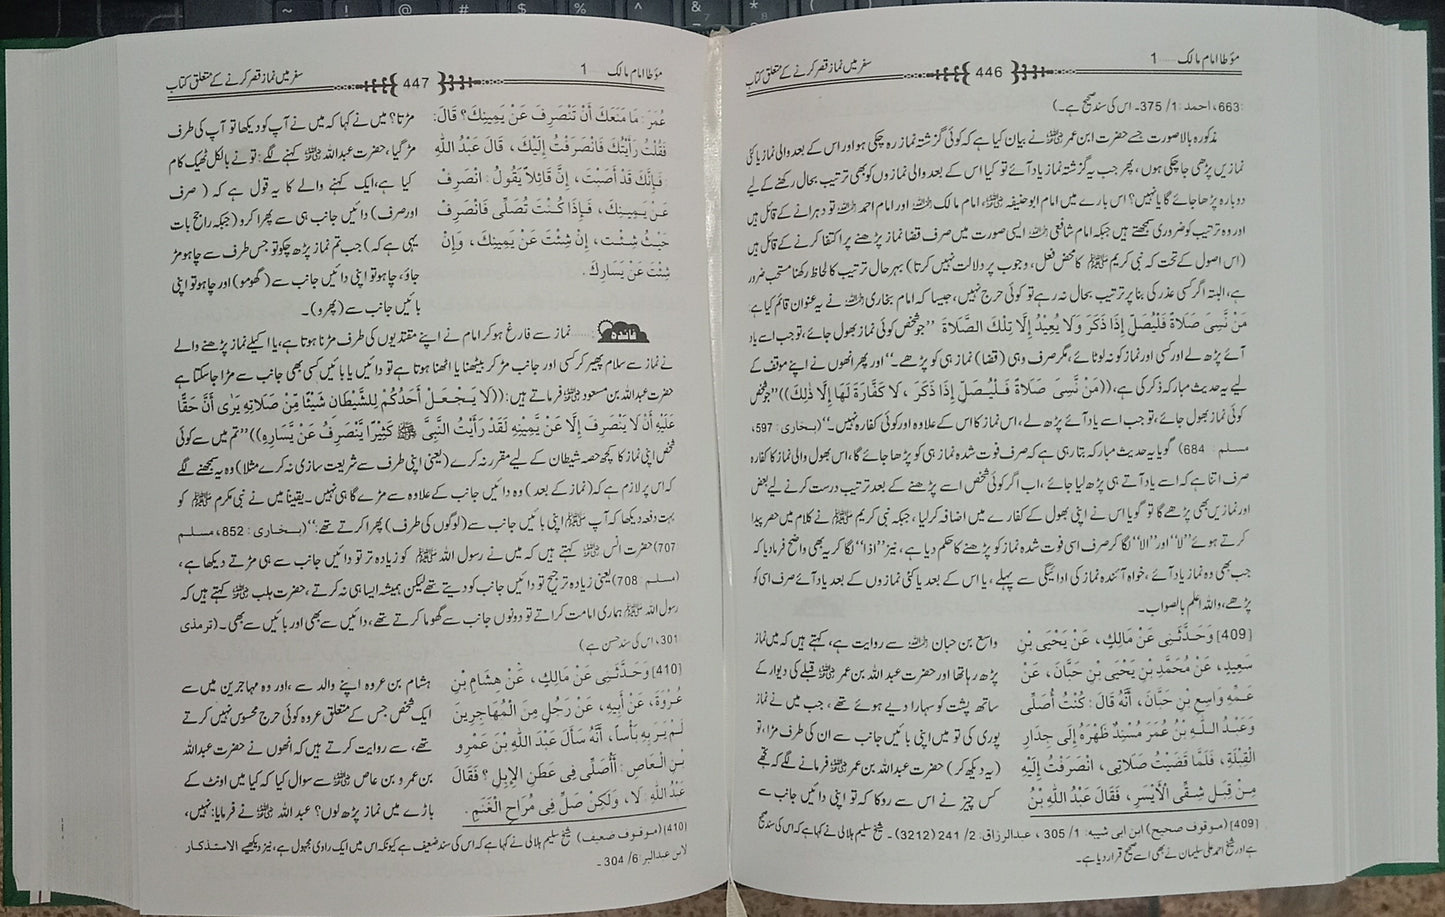 مؤطا امام مالک ..... 1
446
سفر میں نماز قصر کرنے کے متعلق کتاب
663، احمد: 1/ 375۔ اس کی سند صحیح ہے۔)
مذکورہ بالا صورت جسے حضرت ابن عمر رضی اللہ عنہ نے بیان کیا ہے کہ کوئی گزشتہ نماز رہ چکی ہو اور اس کے بعد والی نماز یا کئی
نمازیں پڑھی جا چکی ہوں، پھر جب یہ گزشتہ نماز یاد آئے تو کیا اس کے بعد والی نمازوں کو بھی ترتیب بحال رکھنے کے لیے
دوبارہ پڑھا جائے گا یا نہیں؟ اس بارے میں امام ابوحنیفہ، امام مالک اور امام احمد تو دہرانے کے قائل ہیں
اور وہ ترتیب کو ضروری سمجھتے ہیں جبکہ امام شافعی ایسی صورت میں صرف قضا نماز پڑھنے پر اکتفا کرنے کے قائل ہیں
(اس اصول کے تحت کہ نبی کریم ﷺ کا محض فعل، وجوب پر دلالت نہیں کرتا) بہر حال ترتیب کا لحاظ رکھنا مستحب ضرور
ہے، البتہ اگر کسی عذر کی بنا پر ترتیب بحال نہ رہے تو کوئی حرج نہیں، جیسا کہ امام بخاری نے یہ عنوان قائم کیا ہے:
مَنْ نَّسِیَ صَلَاةً فَلْيُصَلِّ إِذَا ذَكَرَ وَلَا يُعِيْدُ إِلَّا تِلْكَ الصَّلَاةَ ’’جو شخص کوئی نماز بھول جائے، تو جب اسے یاد
آئے پڑھ لے اور کسی اور نماز کو نہ لوٹائے، مگر صرف وہی (قضا) نماز ہی کو پڑھے۔‘‘ اور پھر انھوں نے اپنے موقف کے
لیے یہ حدیث مبارکہ ذکر کی ہے، ((مَنْ نَّسِيَ صَلَاةً فَلْيُصَلِّ إِذَا ذَكَرَ، لَا كَفَّارَةَ لَهَا إِلَّا ذٰلِكَ)) ’’جو شخص
کوئی نماز بھول جائے، تو جب اسے یاد آئے پڑھ لے، اس نماز کا اس کے علاوہ اور کوئی کفارہ نہیں۔‘‘ (بخاری: 597،
مسلم: 684) گویا یہ حدیث مبارکہ بتا رہی ہے کہ صرف فوت شدہ نماز ہی کو پڑھا جائے گا، اس بھول والی نماز کا کفارہ
صرف اتنا ہے کہ اسے یاد آتے ہی پڑھ لیا جائے، اب اگر کوئی شخص اسے پڑھنے کے بعد ترتیب درست کرنے کے لیے بعض
اور نمازیں بھی پڑھے گا تو گویا اس نے اپنی بھول کے کفارے میں اضافہ کر لیا، جبکہ نبی کریم ﷺ نے کلام میں حصر پیدا
کرتے ہوئے ’’لا‘‘ اور ’’الا‘‘ لگا کر صرف اسی فوت شدہ نماز کو پڑھنے کا حکم دیا ہے، نیز ’’اذا‘‘ لگا کر یہ بھی واضح فرما دیا کہ
جب بھی وہ نماز یاد آئے، خواہ آئندہ نماز کی ادائیگی سے پہلے، یا اس کے بعد یا کئی نمازوں کے بعد یاد آئے صرف اسی کو
پڑھے، واللہ اعلم بالصواب۔
[409] وَحَدَّثَنِي عَنْ مَالِكٍ، عَنْ يَحْيَى بْنِ
سَعِيدٍ، عَنْ مُحَمَّدِ بْنِ يَحْيَى بْنِ حَبَّانَ، عَنْ
عَمِّهِ وَاسِعِ بْنِ حَبَّانَ، أَنَّهُ قَالَ: كُنْتُ أُصَلِّى
وَعَبْدُ اللَّهِ بْنُ عُمَرَ مُسْنِدٌ ظَهْرَهُ إِلَى جِدَارِ
الْقِبْلَةِ، فَلَمَّا قَضَيْتُ صَلَاتِى، انْصَرَفْتُ إِلَيْهِ
مِنْ قِبَلِ شِقِّى الْأَيْسَرِ، فَقَالَ عَبْدُ اللَّهِ بْنُ
واسع بن حبان سے روایت ہے، کہتے ہیں کہ میں نماز
پڑھ رہا تھا اور حضرت عبد اللہ بن عمر رضی اللہ عنہ قبلے کی دیوار کے
ساتھ پشت کو سہارا دیے ہوئے تھے، جب میں نے نماز
پوری کی تو میں اپنی بائیں جانب سے ان کی طرف مڑا، تو
(یہ دیکھ کر) حضرت عبد اللہ بن عمر رضی اللہ عنہ فرمانے لگے کہ تجھے
کس چیز نے اس سے روکا کہ تو اپنی دائیں جانب سے
[409] (موقوف صحیح) ابن ابی شیبہ: 1/ 305، عبدالرزاق: 2/ 241 (3212)۔ شیخ سلیم ہلالی نے کہا ہے کہ اس کی سند صحیح
ہے اور شیخ احمد علی سلیمان نے بھی اسے صحیح قرار دیا ہے۔
مؤطا امام مالک ..... 1
447
سفر میں نماز قصر کرنے کے متعلق کتاب
عُمَرَ: مَا مَنَعَكَ أَنْ تَنْصَرِفَ عَنْ يَمِينِكَ؟ قَالَ:
فَقُلْتُ رَأَيْتُكَ فَانْصَرَفْتُ إِلَيْكَ، قَالَ عَبْدُ اللَّهِ
: فَإِنَّكَ قَدْ أَصَبْتَ، إِنَّ قَائِلًا يَقُولُ: انْصَرِفْ
عَنْ يَمِينِكَ، فَإِذَا كُنْتَ تُصَلِّى فَانْصَرِفْ
حَيْثُ شِئْتَ، إِنْ شِئْتَ عَنْ يَمِينِكَ، وَإِنْ
شِئْتَ عَنْ يَسَارِكَ.
مڑتا؟ میں نے کہا کہ میں نے آپ کو دیکھا تو آپ کی طرف
مڑ گیا، حضرت عبداللہ رضی اللہ عنہ کہنے لگے: تو نے بالکل ٹھیک کام
کیا ہے، ایک کہنے والے کا یہ قول ہے کہ (صرف
اور صرف) دائیں جانب ہی سے پھرا کرو (جبکہ راجح بات
یہی ہے کہ) جب تم نماز پڑھ چکو تو جس طرف سے چاہو مڑ
جاؤ، چاہو تو اپنی دائیں جانب سے (گھومو) اور چاہو تو اپنی
بائیں جانب سے (پھرو)۔
فائدہ: ...... نماز سے فارغ ہو کر امام نے اپنے مقتدیوں کی طرف مڑنا ہوتا ہے، یا اکیلے نماز پڑھنے والے
نے نماز سے سلام پھیر کر کسی اور جانب مڑ کر بیٹھنا یا اٹھنا ہوتا ہے تو دائیں یا بائیں کسی بھی جانب سے مڑا جا سکتا ہے
حضرت عبداللہ بن مسعود رضی اللہ عنہ فرماتے ہیں: ((لَا يَجْعَلْ أَحَدُكُمْ لِلشَّيْطَانِ شَيْئًا مِّنْ صَلَاتِهِ يَرٰى أَنَّ حَقًّا
عَلَيْهِ أَنْ لَا يَنْصَرِفَ إِلَّا عَنْ يَّمِيْنِهِ لَقَدْ رَأَيْتُ النَّبِىَّ ﷺ كَثِيْرًا يَّنْصَرِفُ عَنْ يَّسَارِهِ)) ’’تم میں سے کوئی
شخص اپنی نماز کا کچھ حصہ شیطان کے لیے مقرر نہ کرے (یعنی اپنی طرف سے شریعت سازی نہ کرے مثلا) وہ یہ سمجھنے لگے
کہ اس پر لازم ہے کہ (نماز کے بعد) وہ دائیں جانب کے علاوہ سے مڑے گا ہی نہیں۔ یقینا میں نے نبی مکرم ﷺ کو
بہت دفعہ دیکھا کہ آپ ﷺ اپنی بائیں جانب سے (لوگوں کی طرف) پھرا کرتے تھے۔‘‘ (بخاری: 852، مسلم
707) حضرت انس رضی اللہ عنہ کہتے ہیں کہ میں نے رسول اللہ ﷺ کو زیادہ تر تو دائیں جانب سے ہی مڑتے دیکھا ہے،
(مسلم: 708) یعنی زیادہ ترجیح تو دائیں جانب کو دیتے تھے لیکن ہمیشہ ایسا ہی نہ کرتے، حضرت ہلب رضی اللہ عنہ کہتے ہیں کہ
رسول اللہ ﷺ ہماری امامت کراتے تو دونوں جانب سے گھوما کرتے تھے، دائیں سے بھی اور بائیں سے بھی۔ (ترمذی
301، اس کی سند حسن ہے)
[410] وَحَدَّثَنِى عَنْ مَالِكٍ، عَنْ هِشَامِ بْنِ
عُرْوَةَ، عَنْ أَبِيهِ، عَنْ رَجُلٍ مِنَ الْمُهَاجِرِينَ
لَمْ يَرَ بِهِ بَأْسًا، أَنَّهُ سَأَلَ عَبْدَ اللَّهِ بْنَ عَمْرِو
بْنِ الْعَاصِ: أَأُصَلِّى فِى عَطَنِ الْإِبِلِ؟ فَقَالَ
عَبْدُ اللَّهِ: لَا، وَلَكِنْ صَلِّ فِى مُرَاحِ الْغَنَمِ.
ہشام بن عروہ اپنے والد سے، اور وہ مہاجرین میں سے
ایک شخص جس کے متعلق عروہ کوئی حرج محسوس نہیں کرتے
تھے، سے روایت کرتے ہیں کہ انھوں نے حضرت عبداللہ
بن عمرو بن عاص رضی اللہ عنہ سے سوال کیا کہ کیا میں اونٹ کے
باڑے میں نماز پڑھ لوں؟ عبد اللہ رضی اللہ عنہ نے فرمایا: نہیں،
[410] (موقوف ضعیف) شیخ سلیم ہلالی نے کہا ہے کہ اس کی سند ضعیف ہے کیونکہ اس میں ایک راوی مجہول ہے، نیز دیکھیے الاستذکار
لابن عبدالبر: 6/ 304۔